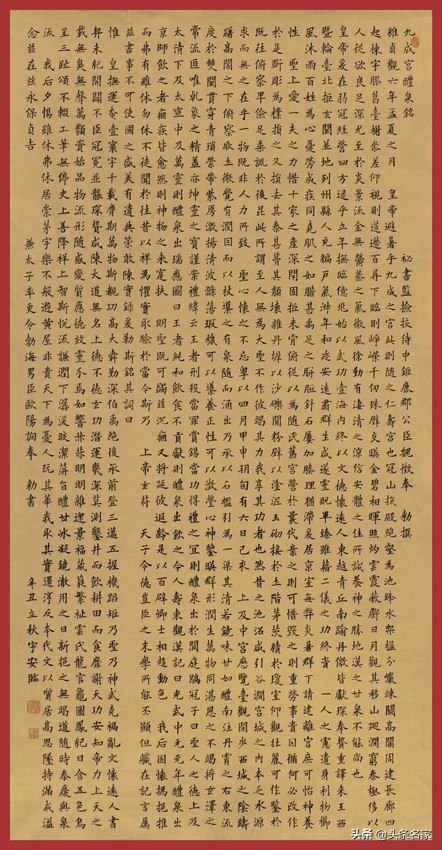 九成宮醴泉銘 秘書監檢校侍中鉅鹿郡公臣魏徵奉 勅撰
維貞觀六年孟夏之月 皇帝避暑乎九成之宮此則隨之仁壽宮也冠山抗殿絕壑為池跨水架楹分巖竦闕高閣周建長廊四
起棟宇膠葛臺榭參差仰視則迢遞百尋下臨則崢嶸千仞珠璧交暎金碧相暉照灼雲霞蔽虧日月觀其移山迴澗窮泰極侈以
人從欲良足深尤至於炎景流金無鬱蒸之氣微風徐動有淒清之涼信安體之佳所誠養神之勝地漢之甘泉不能尚也
皇帝爰在弱冠經營四方逮乎立年撫臨億兆始以武功壹海內終以文德懷遠人東越青丘南踰丹儌皆獻琛奉贄重譯來王西
暨輪臺北拒玄闕並地列州縣人充編戶氣淑年和邇安遠肅群生咸遂靈貺畢臻雖藉二儀之功終資 一人之慮遺身利物櫛
風沐雨百姓為心憂勞成疾同堯肌之如腊甚禹足之胼胝針石屢加腠理猶滯爰居京室每弊炎暑群下請建離宮庶可怡神養
性 聖上愛一夫之力惜十家之產深閉固拒未肯俯從以為隨氏舊宮營於曩代棄之則可惜毀之則重勞事貴因循何必改作
於是斲彫為樸損之又損去其泰甚葺其頹壞雜丹墀以沙礫間粉壁以塗泥玉砌接於土階茅茨續於瓊室仰觀壯麗可作鑒於
既往俯察卑儉足垂訓於後昆此所謂至人無為大聖不作彼竭其力我享其功者也然昔之池沼咸引谷澗宮城之內本乏水源
求而無之在乎一物既非人力所致 聖心懷之不忘粵以四月甲申朔旬有六日己亥 上及中宮歷覽臺觀閑步西城之陰躊
躇高閣之下俯察厥土微覺有潤因而以杖導之有泉隨而涌出乃承以石檻引為一渠其清若鏡味甘如醴南注丹霄之右東流
度於雙闕貫穿青瑣縈帶紫房激揚清波滌蕩瑕穢可以導養正性可以澂瑩心神鑒暎群形潤生萬物同湛恩之不竭將玄澤之
常流匪唯乾象之精蓋亦坤靈之寶謹案禮緯云王者刑殺當罪賞錫當功得禮之宜則醴泉出於闕庭鶡冠子曰聖人之德上及
太清下及太寧中及萬靈則醴泉出瑞應圖曰王者純和飲食不貢獻則醴泉出飲之令人壽東觀漢記曰光武中元元年醴泉出
京師飲之者痼疾皆愈然則神物之來寔扶 明聖既可蠲茲沉痼又將延彼遐齡是以百辟卿士相趨動色 我后固懷撝挹推
而弗有雖休勿休不徒聞於往昔以祥為懼實取驗於當今斯乃 上帝玄符 天子令德豈臣之末學所能丕顯但職在記言屬
茲書事不可使國之盛美有遺典策敢陳實錄爰勒斯銘其詞曰
惟 皇撫運奄壹寰宇千載膺期萬物斯覩功高大舜勤深伯禹絕後承前登三邁五握機蹈矩乃聖乃神武克禍亂文懷遠人書
契未紀開闢不臣冠冕並襲琛贄咸陳大道無名上德不德玄功潛運幾深莫測鑿井而飲耕田而食靡謝天功安知帝力上天之
載無臭無聲萬類資始品物流形隨感變質應德效靈介焉如響赫赫明明雜遝景福葳蕤繁祉雲氏龍官龜圖鳳紀日含五色烏
呈三趾頌不輟工筆無停史上善降祥上智斯悅流謙潤下潺湲皎潔蓱旨醴甘冰凝鏡澈用之日新挹之無竭道隨時泰慶與泉
流我后夕惕雖休弗休居崇茅宇樂不般遊黃屋非貴天下為憂人玩其華我取其實還淳反本代文以質居高思墜持滿戒溢
念茲在茲永保貞吉 兼太子率更令勃海男臣歐陽詢奉 勅書
辛丑立秋宇安臨
头条 @头条名家